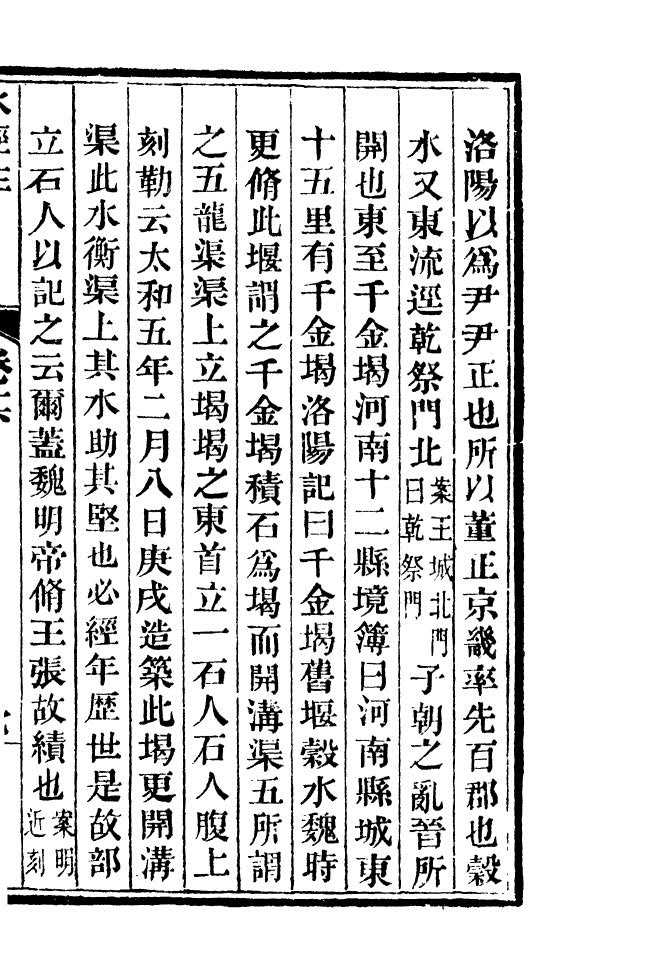 洛陽以爲尹尹正也所以董正京畿率先百郡也穀
水又東流逕乾祭門北案王城北門曰乾祭門子朝之亂晉所
開也東至千金堨河南十二縣境簿曰河南縣城東
十五里有千金堨洛陽記曰千金堨舊堰穀水魏時
更脩此堰謂之千金堨積石爲堨而開溝渠五所謂
之五龍渠渠上立堨堨之東首立一石人石人腹上
刻勒云太和五年二月八日庚戌造築此堨更開溝
渠此水衡渠上其水助其堅也必經年歴世是故部
立石人以記之云爾蓋魏明帝脩王張故績也案明近刻
水經注